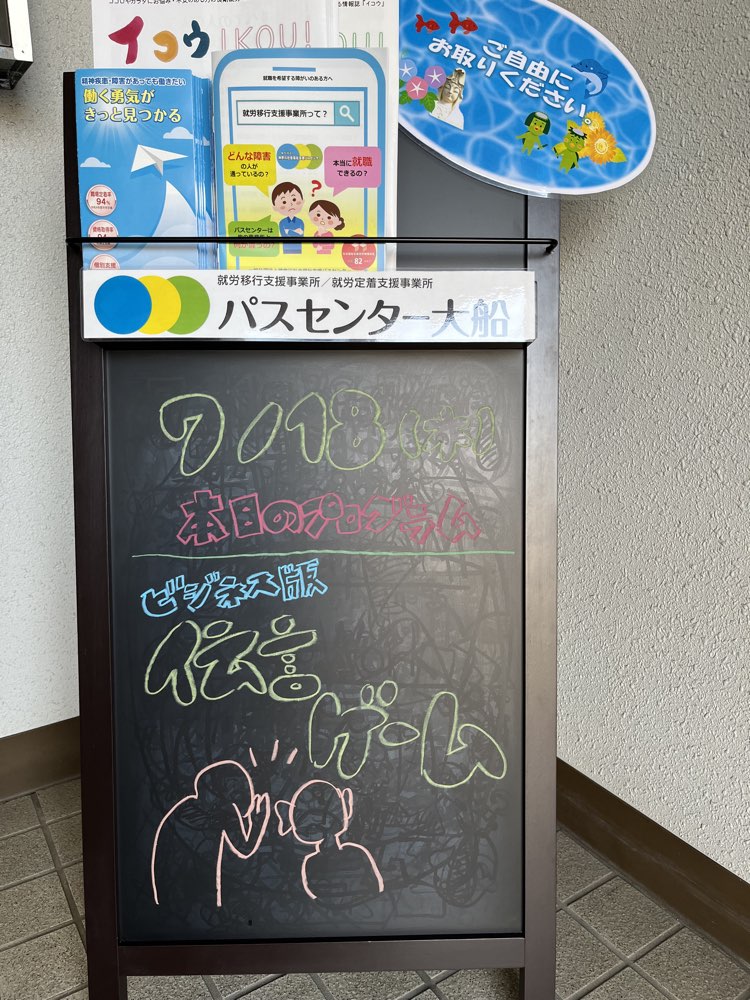 る情報誌「イコウ」
イコウ IKOU!
精神疾患・障害があっても働きたい
働く勇気が
きっと見つかる
職場定着率
94%
個別支援
就職を希望する障がいのある方へ
就労移行支援事業所って?
どんな障害
の人が
通っているの?
本当に就職
できるの?
パスセンターは
82
ご自由に
お取りください。
就労移行支援事業所/就労定着支援事業所
パスセンター大船
7/18(木)
本日のプログラム
ビジネス版
伝言
ゲーム